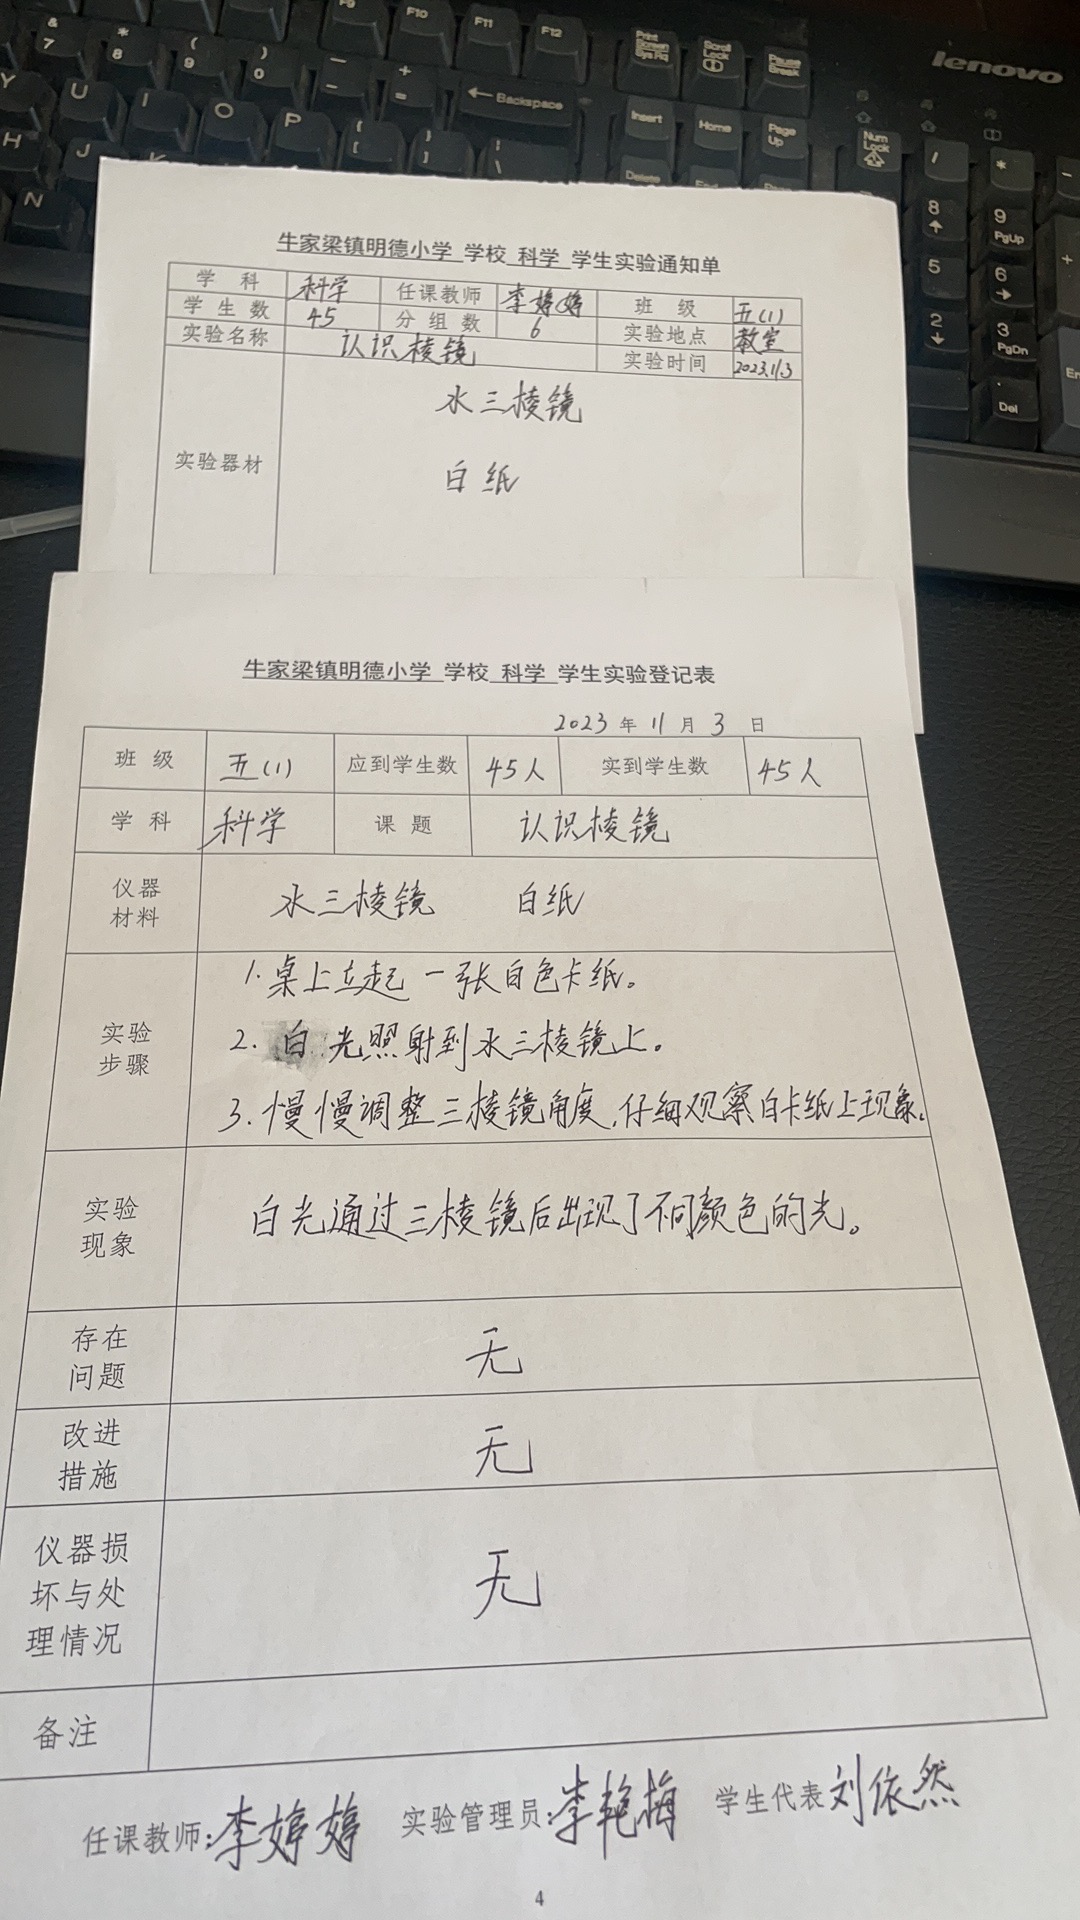 F9 F10 F11 F12 Print Screen Sys Rq Scroll Lock Pause Break
lenovo
& 7 * 8 ( 9 ) 0 — - + = ← Backspace Insert Home Page Up Num Lock / * -
Y U I O P { [ } ] | \ Delete End 8 ↑ 9 PgUp +
H J K 5 6 →
N 2 ↓ 3 PgDn En
Del
牛家梁镇明德小学 学校 科学 学生实验通知单
学 科 科学 任课教师 李婷婷 班 级 五(1)
学生数 45 分组数 6 实验地点 教室
实验名称 认识棱镜 实验时间 2023.11.3
实验器材
水三棱镜
白纸
牛家梁镇明德小学 学校 科学 学生实验登记表
2023 年 11 月 3 日
班 级 五(1) 应到学生数 45人 实到学生数 45人
学 科 科学 课 题 认识棱镜
仪器
材料
水三棱镜 白纸
实验
步骤
1.桌上立起一张白色卡纸。
2.白光照射到水三棱镜上。
3.慢慢调整三棱镜角度,仔细观察白卡纸上现象。
实验
现象
白光通过三棱镜后出现了不同颜色的光。
存在
问题
无
改进
措施
无
仪器损
坏与处
理情况
无
备注
任课教师:李婷婷 实验管理员:李艳梅 学生代表刘依然
4